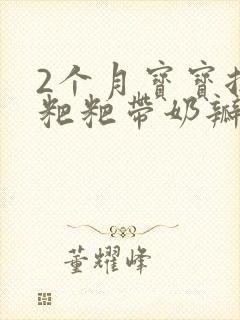 2个月寶寶拉
粑粑帶奶瓣
董耀峰